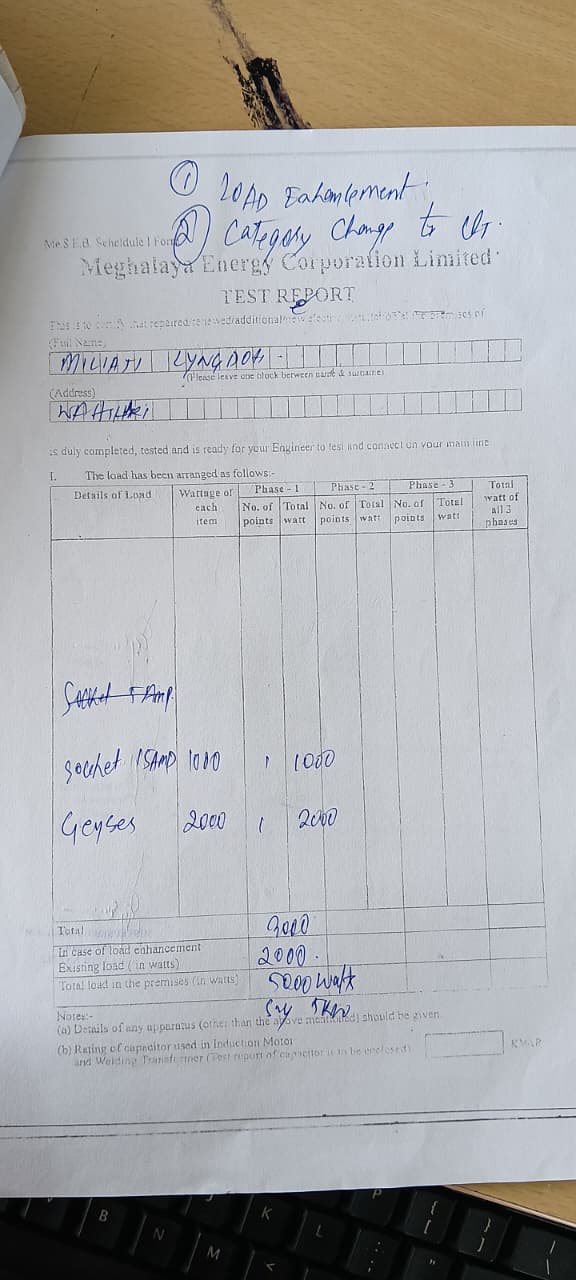 ① LOAD Enhancement.
② Category Change to
Me.S.E.B. Scheldule I Form
Meghalaya Energy Corporation Limited
TEST REPORT
This is to certify that repaired/renewed/additional/new at the premises of
(Full Name)
LYNGDOH
(Please leave one block between name & surname)
(Address)
is duly completed, tested and is ready for your Engineer to test and connect on your main line
I. The load has been arranged as follows:-
Details of Load Wattage of each item Phase - 1 Phase - 2 Phase - 3 Total watt of all 3 phases
No. of points Total watt No. of points Total watt No. of points Total watt
Socket 5 Amp
Socket 15AMP 1000 1 1000
Geyser 2000 1 2000
Total 3000
In case of load enhancement
Existing load (in watts) 2000.
Total load in the premises (in watts) 5000 watts
Say 5KW
Notes:-
(a) Details of any apparatus (other than the above mentioned) should be given
(b) Rating of capacitor used in Induction Motor
and Welding Transformer (Test report of capacitor is to be enclosed) KVAR
B
N
M
K
L
P